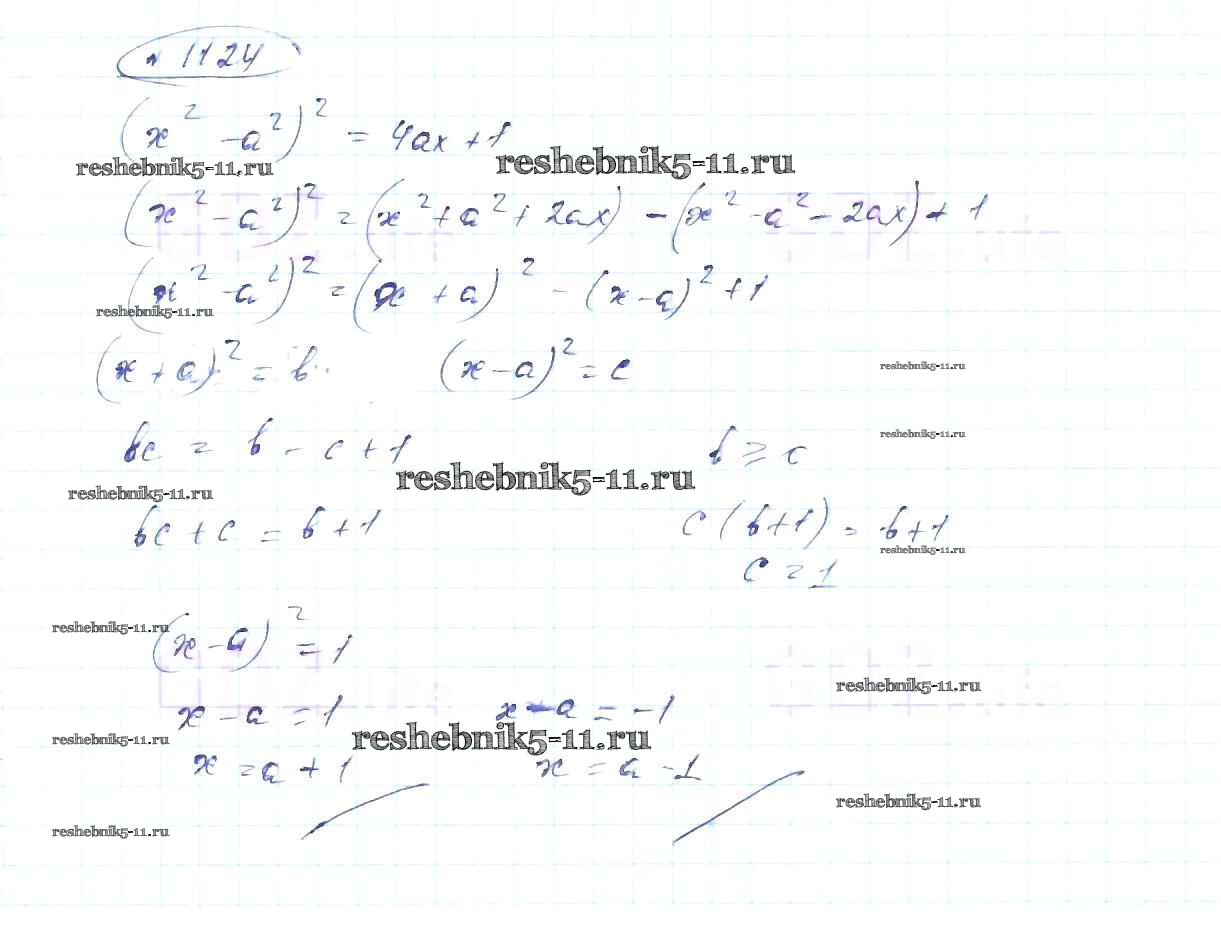 № 1124
(x² - a²)² = 4ax + 1
reshebnik5-11.ru reshebnik5-11.ru
(x² - a²)² = (x² + a² + 2ax) - (x² - a² - 2ax) + 1
(x² - a²)² = (x + a)² - (x - a)² + 1
reshebnik5-11.ru
(x + a)² = b (x - a)² = c
reshebnik5-11.ru
bc = b - c + 1 b ≥ c
reshebnik5-11.ru
reshebnik5-11.ru
reshebnik5-11.ru
bc + c = b + 1 c(b + 1) = b + 1
reshebnik5-11.ru
c = 1
reshebnik5-11.ru
(x - a)² = 1
reshebnik5-11.ru
x - a = 1 x - a = -1
reshebnik5-11.ru reshebnik5-11.ru
x = a + 1 x = a - 1
reshebnik5-11.ru
reshebnik5-11.ru